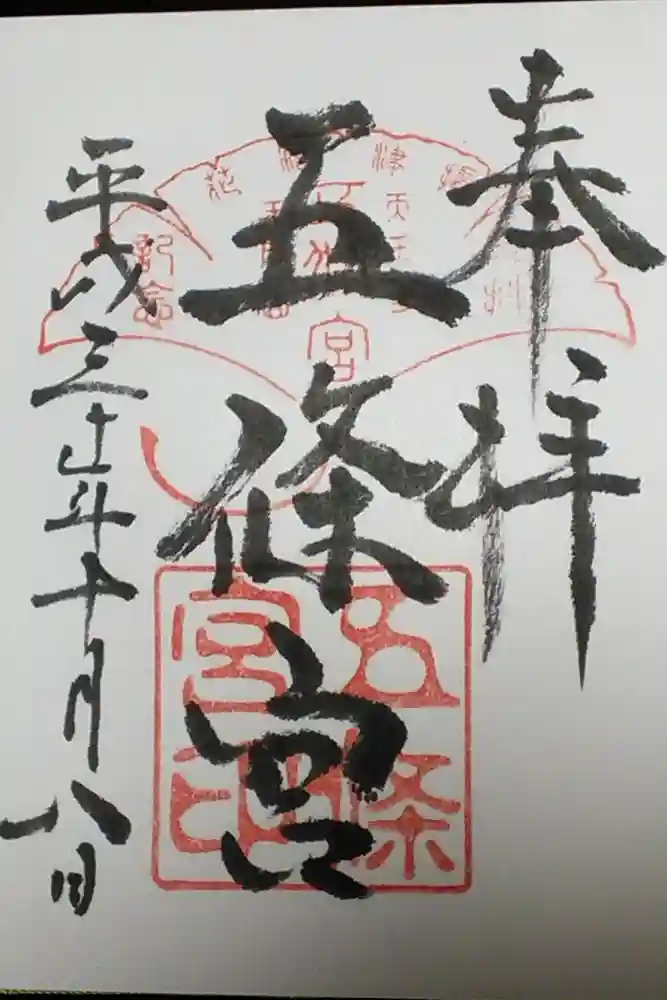 奉拝
五條宮
平成三十年十月八日
五條
宮印
宮
記念